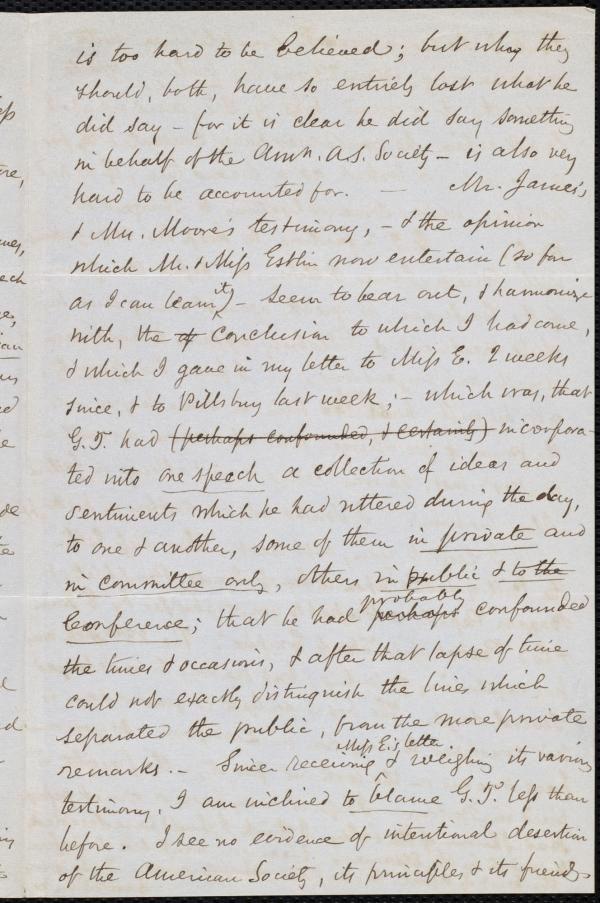 is too hard to be believed; but why they
should, both, have so entirely lost what he
did say – for it is clear he did say something
in behalf of the Amn. A.S. Society – is also very
hard to be accounted for. — Mr. James's,
& Mr. Moore's testimony, – & the opinion
which Mr. & Miss Estlin now entertain (so far
as I can learn it) – seem to bear out, & harmonize
with, the of conclusion to which I had come,
& which I gave in my letter to Miss E. 2 weeks
since, & to Pillsbury last week; – which was, that
G. T. had (perhaps confounded, & certainly) incorpora-
ted into one speech a collection of ideas and
sentiments which he had uttered during the day,
to one & another, some of them in private and
in committee only, others in public & to the
Conference; that he had perhaps probably confounded
the times & occasions, & after that lapse of time
could not exactly distinguish the lines which
separated the public, from the more private
remarks. – Since receiving Miss E's letter & weighing its various
testimony, I am inclined to blame G. T. less than
before. I see no evidence of intentional desertion
of the American Society, its principles & its friends